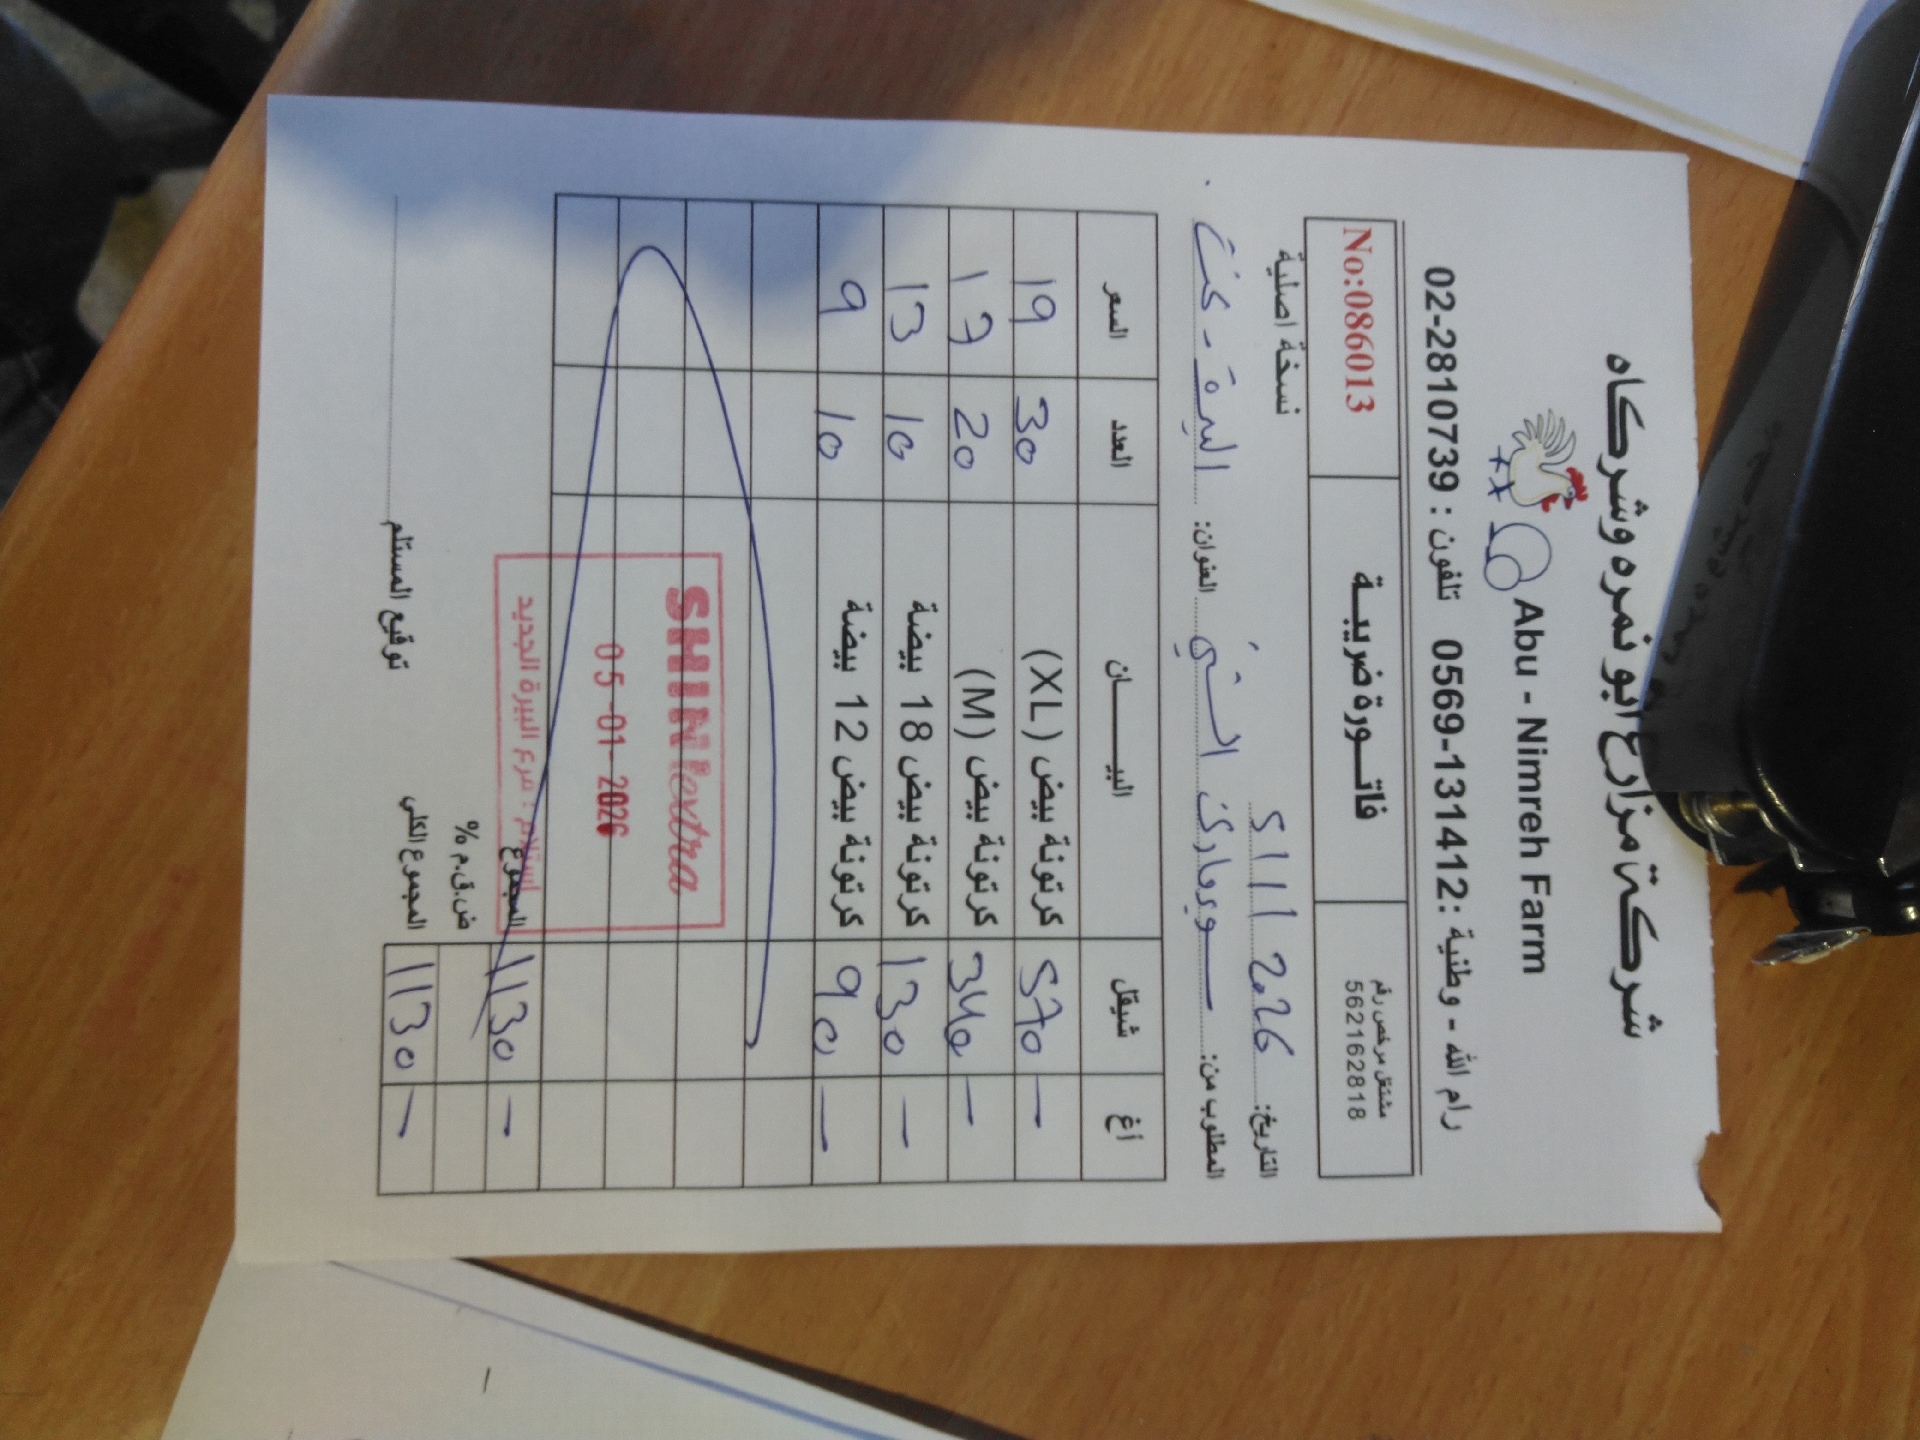 شركة مزارع ابو نمره وشركاه
Abu - Nimreh Farm
رام الله - وطنية : 0569-131412 تلفون : 02-2810739
مشتغل مرخص رقم
562162818
فاتـورة ضريبـة
No:086013
التاريخ: 5/1/2026
نسخة اصلية
المطلوب من: سوبرماركت الشني العنوان: البيرة -
اغ شيقل البيـــــان العدد السعر
- 570 كرتونة بيض (XL) 30 19
- 340 كرتونة بيض (M) 20 17
- 130 كرتونة بيض 18 بيضة 10 13
- 90 كرتونة بيض 12 بيضة 10 9
SHINI extra
05-01-2026
استلام : فرع البيرة الجديد
- 1130 المجموع
ض.ق.م %
- 1130 المجموع الكلي
توقيع المستلم